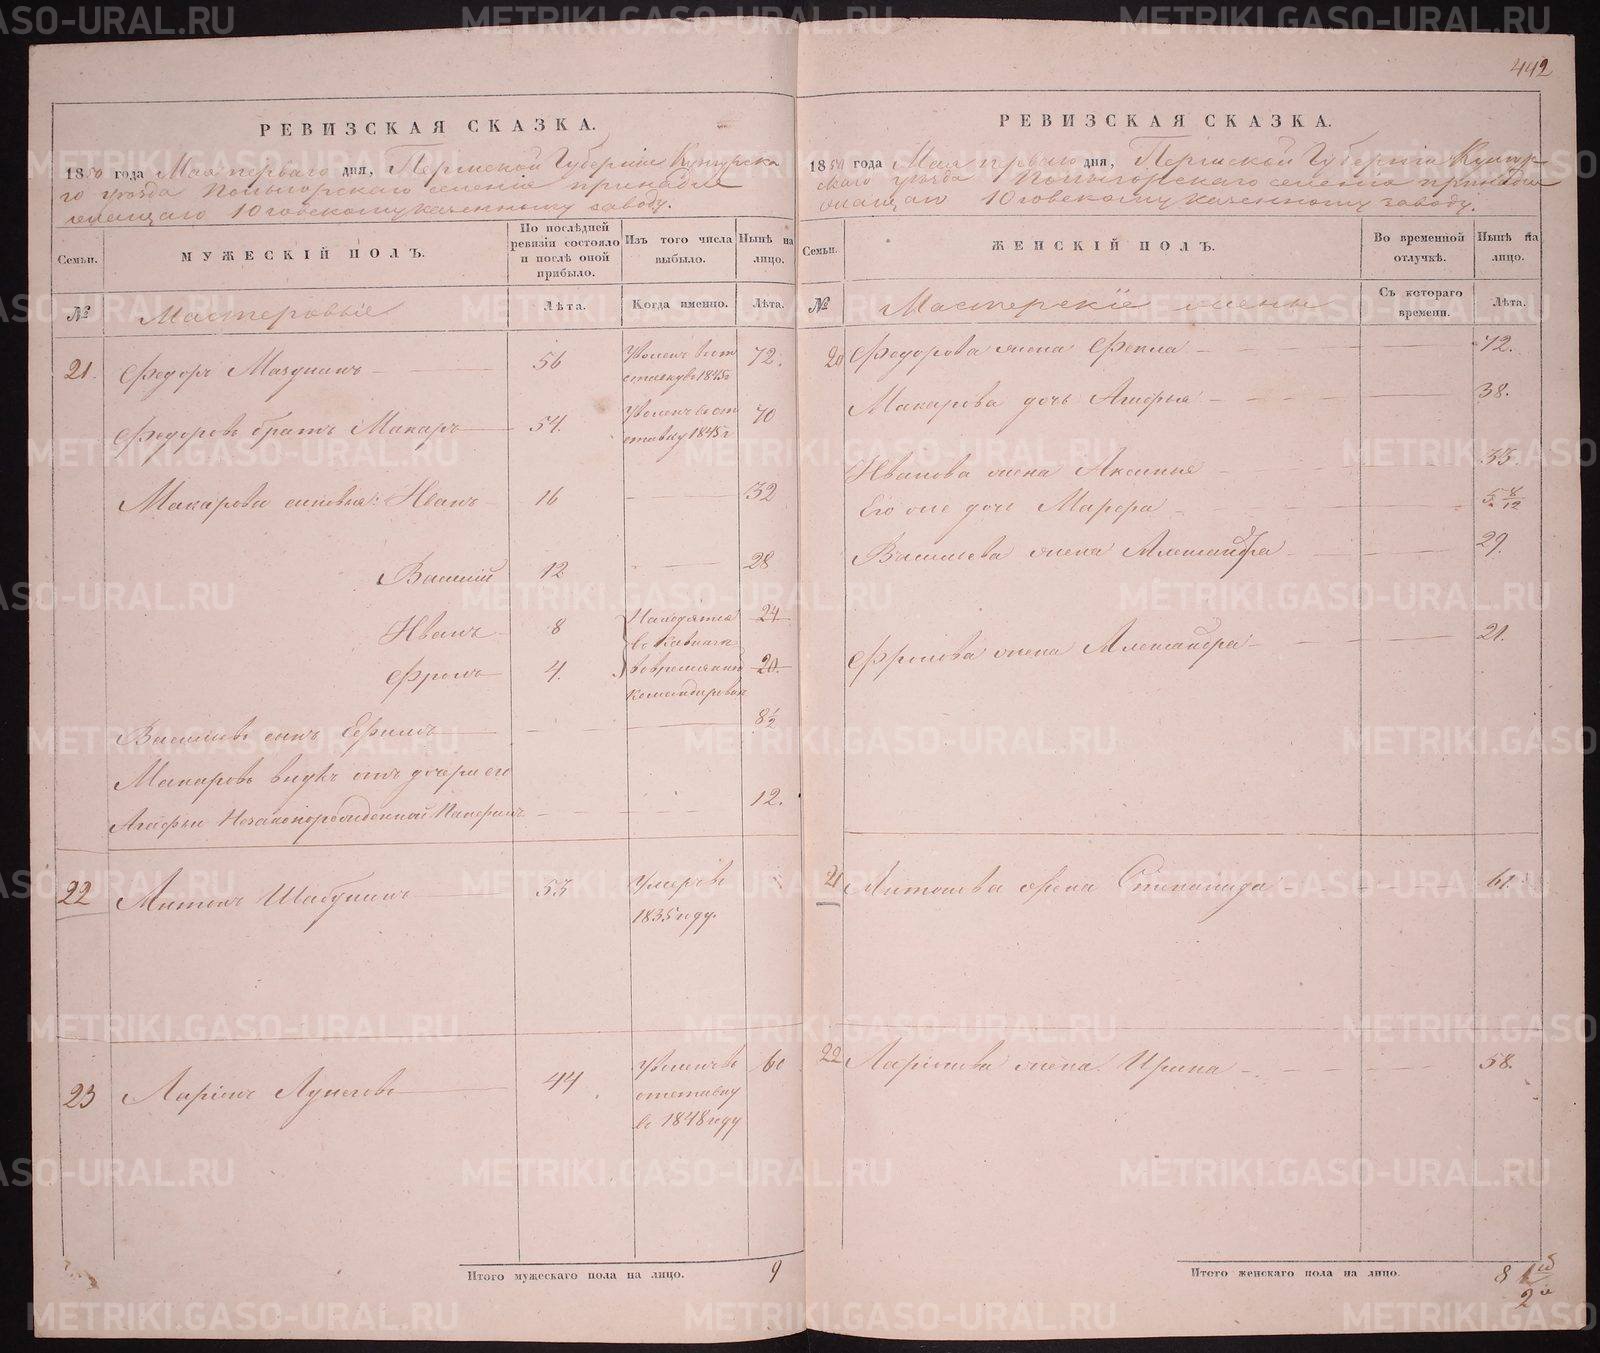 442
РЕВИЗСКАЯ СКАЗКА.
1850 года Мая перваго дня, Пермской Губерніи Кунгурска
го уѣзда селенія принадле
жащаго Юговскому казенному заводу.
Семьи.
МУЖЕСКІЙ ПОЛЪ.
По послѣдней ревизіи состояло и послѣ оной прибыло.
Изъ того числа выбыло.
Нынѣ на лицо.
№
Мастеровые
Лѣта.
Когда именно.
Лѣта.
21.
Федоръ
56
Уволенъ въ от
ставку въ 1845 г
72.
Федоровъ братъ Макаръ
54.
Уволенъ въ от
ставку 1845 г
70
Макаровы сыновья: Иванъ
16
32
Василій
12
28
Иванъ
8
Находятся
въ
24
Фролъ
4.
во временной
командировке
20.
Васильевъ сынъ Ефимъ
8 1/2
Макаровъ внукъ отъ дочери его
Агафьи Незаконорожденной
12.
22
Антонъ Шабунинъ
53
Умеръ въ
1835 году.
23
Ларіонъ Лунеговъ
44
Уволенъ въ
отставку
въ 1848 году
60
Итого мужескаго пола на лицо.
9
РЕВИЗСКАЯ СКАЗКА.
1850 года Мая перваго дня, Пермской Губерніи Кунгур
скаго уѣзда селенія принадле
жащаго Юговскому казенному заводу.
Семьи.
ЖЕНСКІЙ ПОЛЪ.
Во временной отлучкѣ.
Нынѣ на лицо.
№
Мастерскіе жены
Съ котораго времени.
Лѣта.
20
Федорова жена Фекла
72.
Макарова дочь Агафья
38.
Иванова жена Аксинья
33.
Его же дочь Марфа
5 8/12
Васильева жена Александра
29.
Фролова жена Александра
21.
21
Антонова жена Степанида
61.
22
Ларіонова жена Ирина
58.
Итого женскаго пола на лицо.
8
METRIKI.GASO-URAL.RU